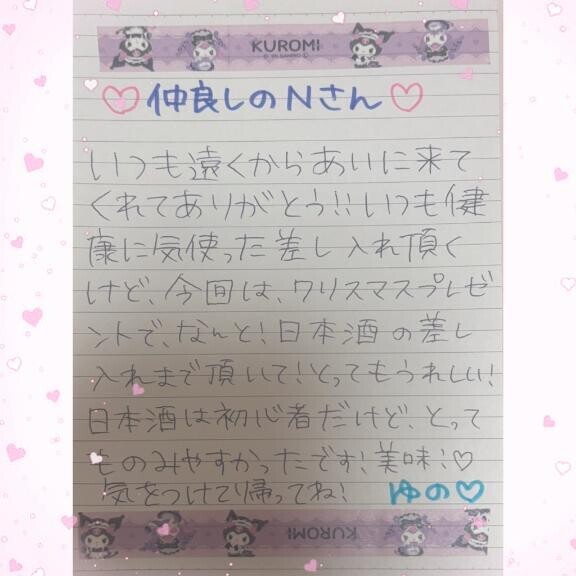 KUROMI
♡仲良しのNさん♡
いつも遠くからあいに来て
くれてありがとう!!いつも健
康に気使った差し入れ頂く
けど、今回は、クリスマスプレゼ
ントで、なんと!日本酒の差し
入れまで頂いて!とってもうれしい!
日本酒は初心者だけど、とって
ものみやすかったです!美味!♡
気をつけて帰ってね! ゆの♡
KUROMI